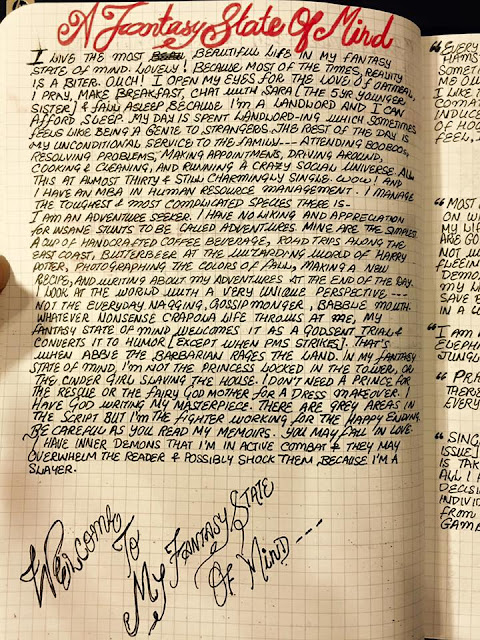 A Fantasy State Of Mind
I live the most beautiful life in my fantasy
state of mind. Lovely! Because most of the times, reality
is a biter. Ouch! I open my eyes for the love of oatmeal,
I pray, make breakfast, chat with Sara [the 5yr younger
sister] & fall asleep because I'm a landlord and I can
afford sleep. My day is spent landlord-ing which sometimes
feels like being a genie to strangers. The rest of the day is
my unconditional service to the family--- attending booboos,
resolving problems, making appointments, driving around,
cooking & cleaning, and running a crazy social universe. All
this at almost thirty & still charmingly single. Wow! And
I have an MBA in Human Resource Management. I manage
the toughest & most complicated species there is.
I am an adventure seeker. I have no liking and appreciation
for insane stunts to be called adventures. Mine are the simplest
a cup of handcrafted coffee beverage, road trips along the
east coast, butterbeer at the Wizarding World of Harry
Potter, photographing the colors of fall, making a new
recipe, and writing my adventures at the end of the day.
I look at the world with a very unique perspective---
not the everyday nagging, gossip monger, babble mouth.
Whatever nonsense crapola life throws at me, my
fantasy state of mind welcomes it as a Godsent trial &
converts it to humor [except when PMS strikes]. That's
when Abbie the Barbarian rages the land. In my fantasy
state of mind, I'm not the princess locked in the tower, or
the cinder girl slaving the house. I don't need a prince for
the rescue or the fairy god mother for a dress makeover. I
have God writing my masterpiece. There are grey areas in
the script but I'm the fighter working for the happy ending.
Be careful as you read my memoirs. You may fall in love.
I have inner demons that I'm in active combat & they may
overwhelm the reader & possibly shock them, because I'm a
slayer.
Welcome
To
My Fantasy State
Of Mind---
"Every
hams
some
me ou
I like t
coma
induc
of ho
feel.
"Most
on wh
my lif
are go
not w
fleein
demo
my l
save
in a w
"I am
eleph
jungl
"Pra
there
every
"Sing
issue]
is tak
all I
decisi
indivi
from
game